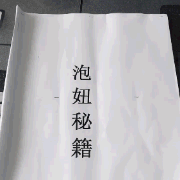 泡妞秘籍